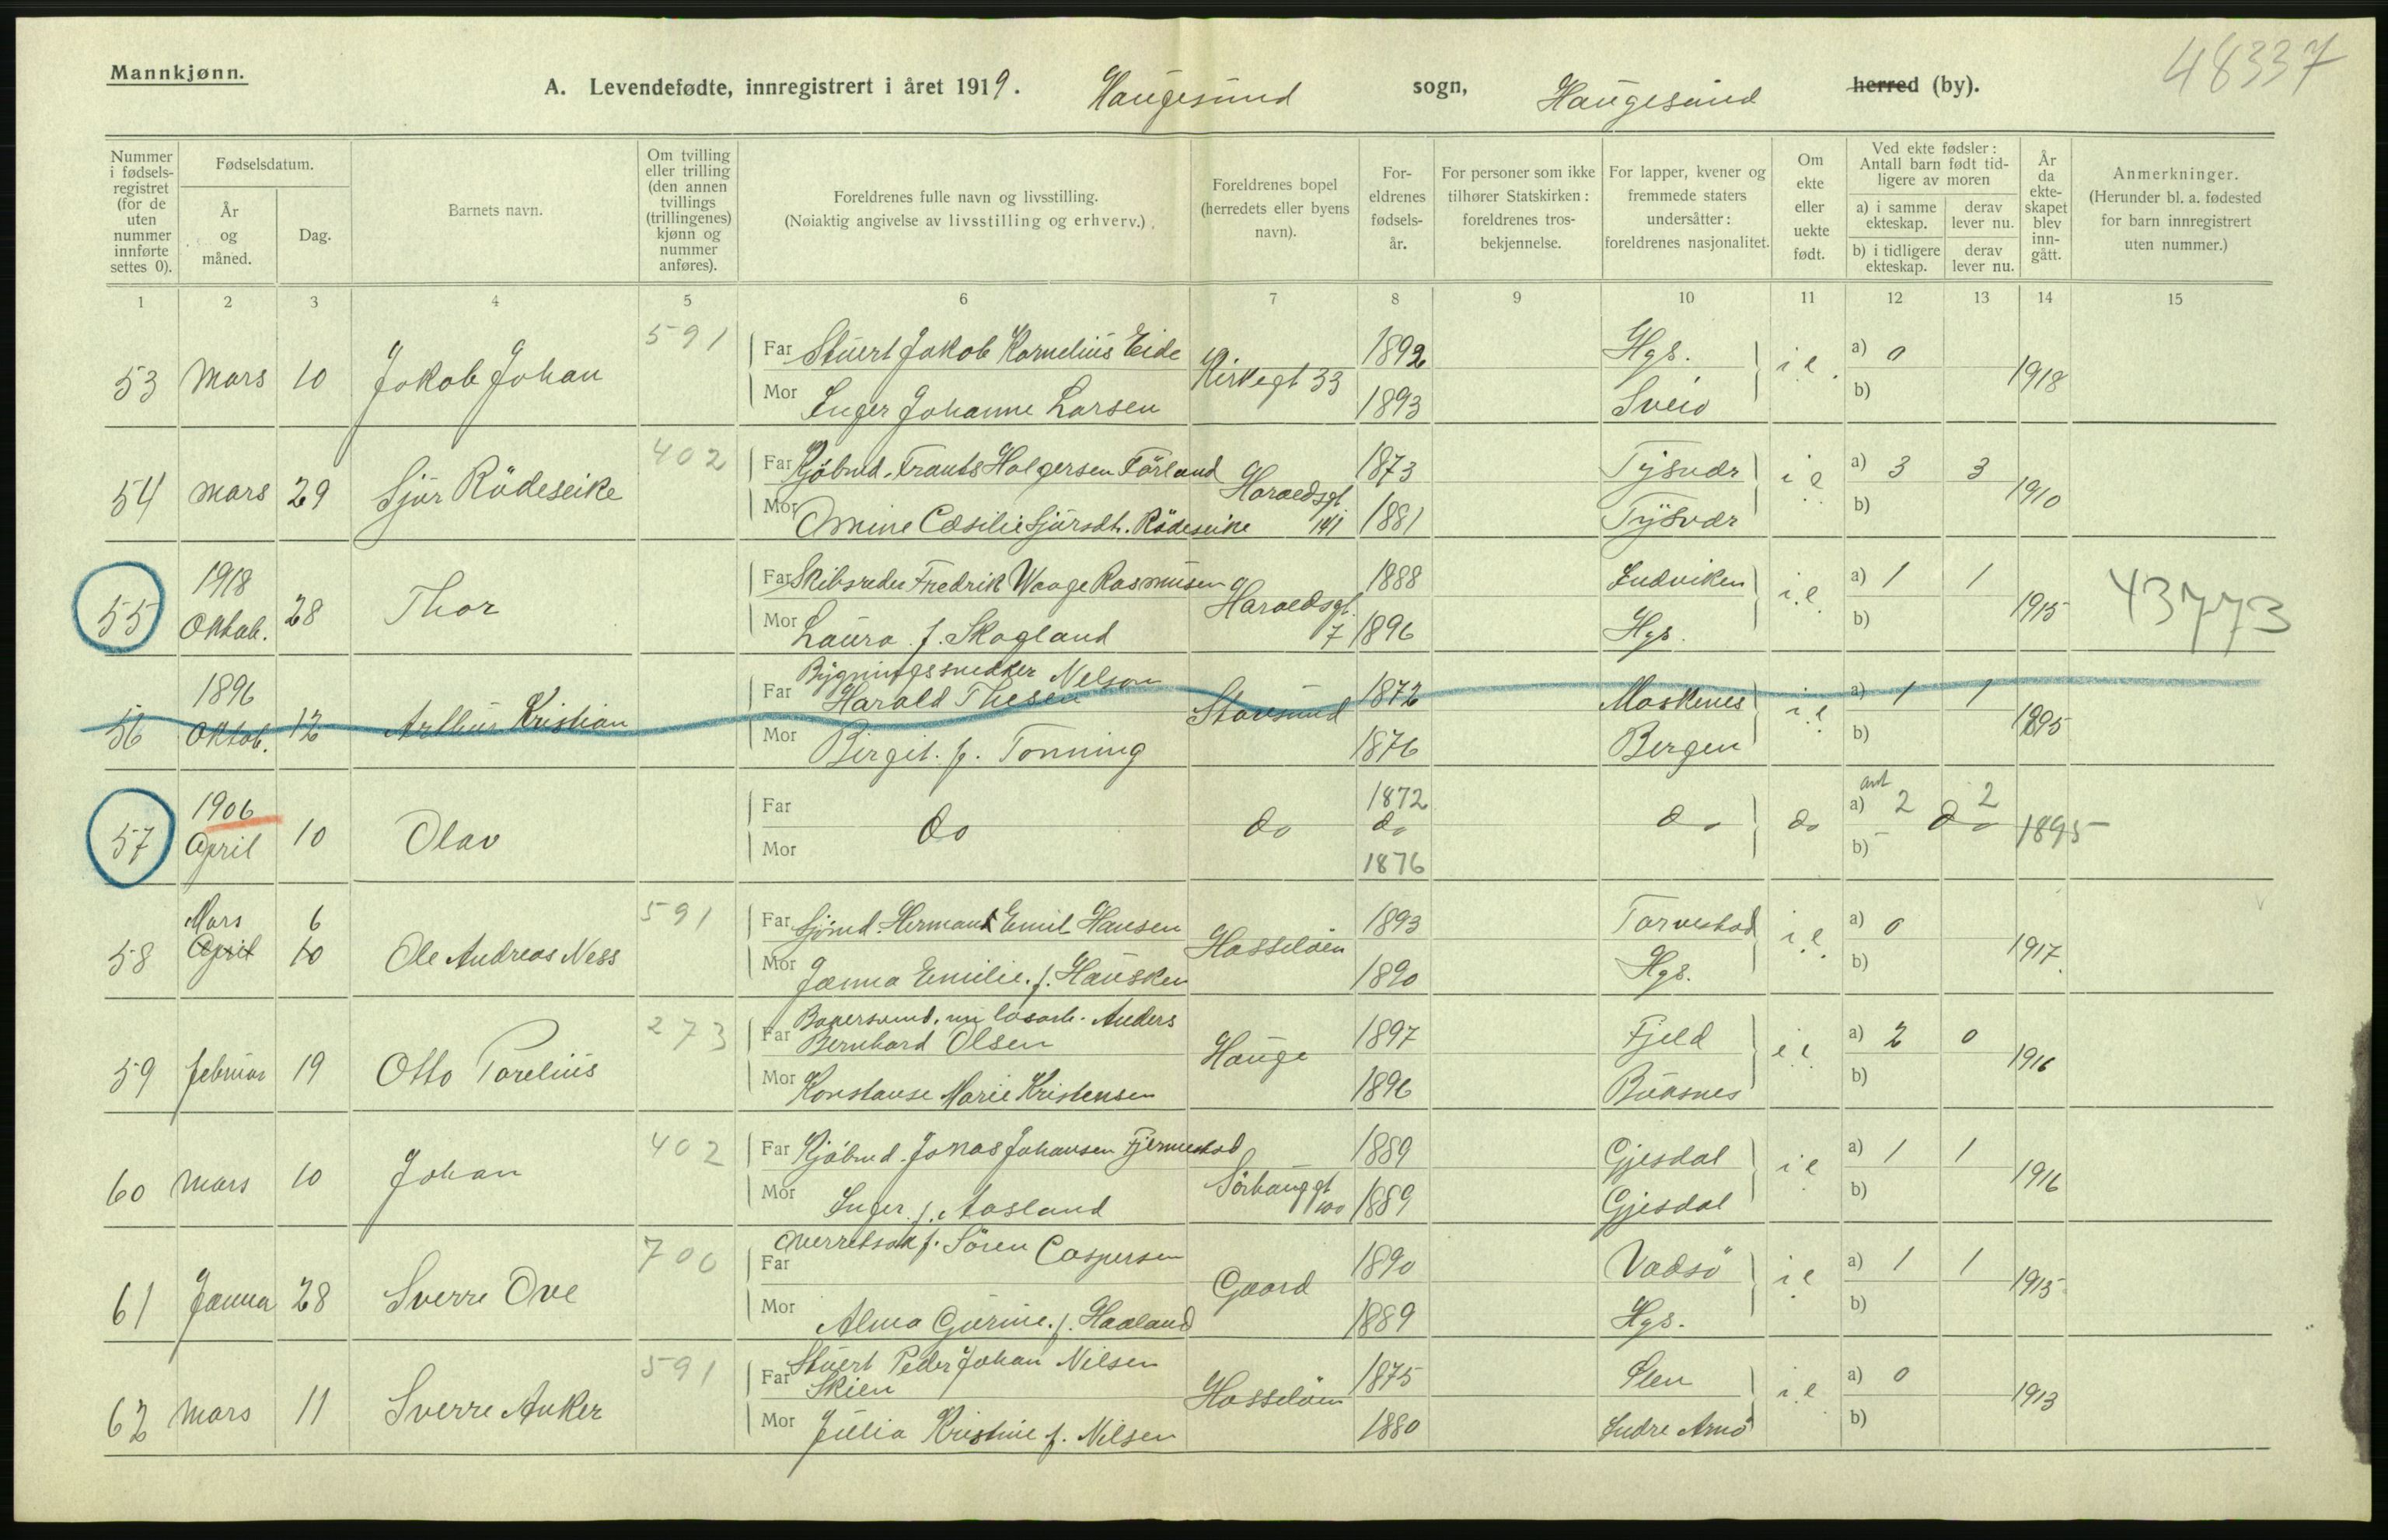 48337
Mannkjønn.
A. Levendefødte, innregistrert i året 1919. Haugesund sogn, Haugesund herred (by).
Nummer i fødselsregistret (for de uten nummer innførte settes 0).
Fødselsdatum.
År og måned.
Dag.
Barnets navn.
Om tvilling eller trilling (den annen tvillings (trillingenes) kjønn og nummer anføres).
Foreldrenes fulle navn og livsstilling.
(Nøiaktig angivelse av livsstilling og erhverv.)
Foreldrenes bopel (herredets eller byens navn).
Foreldrenes fødselsår.
For personer som ikke tilhører Statskirken: foreldrenes trosbekjennelse.
For lapper, kvener og fremmede staters undersåtter: foreldrenes nasjonalitet.
Om ekte eller uekte født.
Ved ekte fødsler: Antall barn født tidligere av moren
a) i samme ekteskap. derav lever nu.
b) i tidligere ekteskap. derav lever nu.
År da ekteskapet blev inngått.
Anmerkninger.
(Herunder bl. a. fødested for barn innregistrert uten nummer.)
1 2 3 4 5 6 7 8 9 10 11 12 13 14 15
53 Mars 10 Jakob Johan 591 Far Stuert Jakob Kornelius Eide Kirkegt 33 1892 Hgs. i.e. a) 0 1918
Mor Inger Johanne Larsen 1893 Sveio b)
54 Mars 29 Sjur Rödeseike 402 Far Kjöbmd. Trants Holgersen Förland Haraldsgt 141 1873 Tysvær i e a) 3 3 1910
Mor Amine Cæsilie Sjursdt. Rödeseike 1881 Tysvær b)
55 1918 Oktob. 28 Thor Far Skibsreder Fredrik Waage Rasmusen Haraldsgt. 7 1888 Ludviken i.e. a) 1 1 1915 43773
Mor Laura f. Skogland 1896 Hgs. b)
56 1896 Oktob. 12 Arthur Kristian Far Bygningssnekker Nelson Harald Thesen Storesund 1872 Moskenes i.e a) 1 1 1895
Mor Birgit. f. Tonning 1876 Bergen b)
57 1906 April 10 Olav Far do do 1872 do do do a) ant 2 2 do 1895
Mor 1876 b)
58 Mars April 6 10 Ole Andreas Ness 591 Far Sjömd. Hermand Emil Hansen Hasselöen 1893 Torvestad i.e. a) 0 1917.
Mor Janna Emilie. f. Hausken 1890 Hgs. b)
59 februar 19 Otto Torelius 273 Far Bakersvend, nu løsarb. Anders Bernhard Olsen Hauge 1897 Fjeld e e a) 2 0 1916
Mor Konstanse Marie Kristensen 1896 Buksnes b)
60 Mars 10 Johan 402 Far Kjöbmd. Jonas Johansen Fjermestad Sörhauggt 100 1889 Gjesdal i e a) 1 1 1916
Mor Inger f. Aasland 1889 Gjesdal b)
61 Janua 28 Sverre Ove 700 Far Overretssakf. Sören Caspersen Gaard 1890 Vadsö i e a) 1 1 1915
Mor Alma Gurine. f. Haaland 1889 Hgs. b)
62 Mars 11 Sverre Anker 591 Far Stuert Peder Johan Nilsen Skien Hasselöen 1875 i.e a) 0 1913
Mor Julia Kristine f. Nilsen 1880 Indre Arnö b)